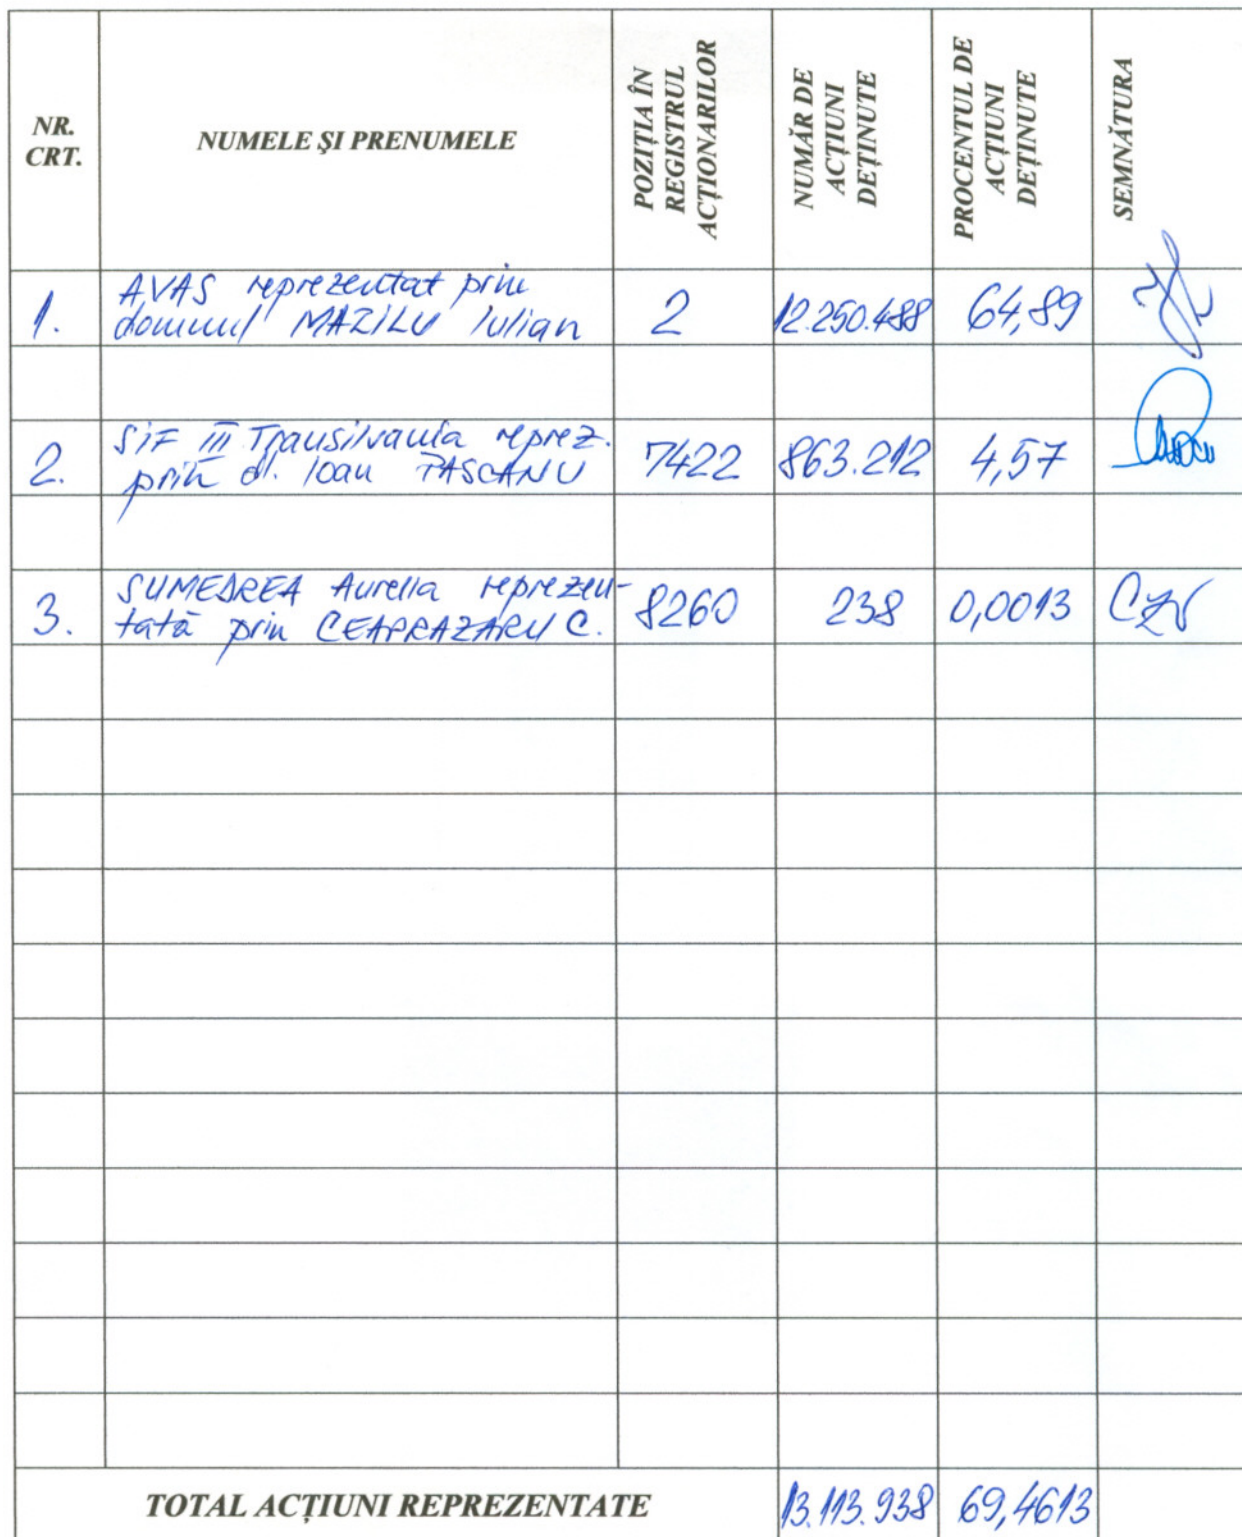 NR. CRT.
NUMELE ŞI PRENUMELE
POZIŢIA ÎN REGISTRUL ACŢIONARILOR
NUMĂR DE ACŢIUNI DEŢINUTE
PROCENTUL DE ACŢIUNI DEŢINUTE
SEMNĂTURA
1. AVAS reprezentat prin
domnul MAZILU Iulian 2 12.250.488 64,89
2. SIF III Transilvania reprez.
prin dl. Ioan PASCANU 7422 863.212 4,57
3. SUMEDREA Aurelia reprezen-
tată prin CEAPRAZARU C. 8260 238 0,0013
TOTAL ACŢIUNI REPREZENTATE 13.113.938 69,4613